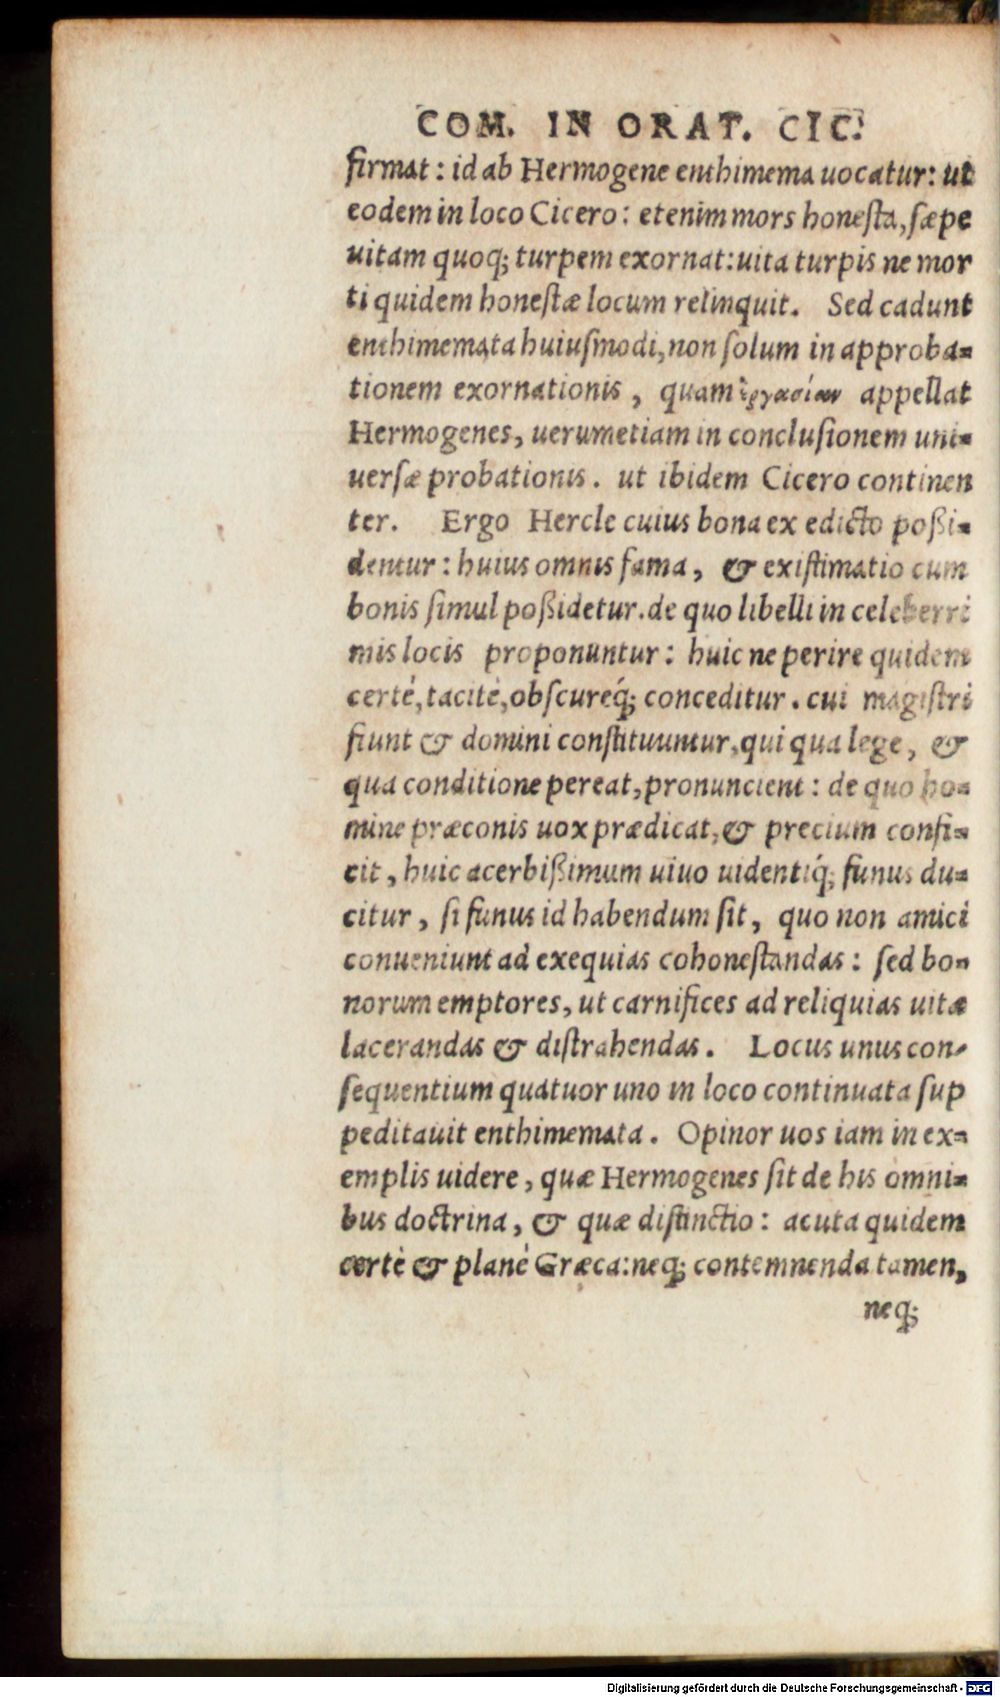 COM. IN ORAT. CIC.
firmat: id ab Hermogene enthimema uocatur: ut
eodem in loco Cicero: etenim mors honeſta, ſæpe
uitam quoq; turpem exornat: uita turpis ne mor
ti quidem honeſtæ locum relinquit. Sed cadunt
enthimemata huiuſmodi, non ſolum in approba=
tionem exornationis, quam ἐργασίαν appellat
Hermogenes, uerumetiam in concluſionem uni=
uerſæ probationis. ut ibidem Cicero continen
ter. Ergo Hercle cuius bona ex edicto poßi=
dentur: huius omnis fama, & exiſtimatio cum
bonis ſimul poßidetur. de quo libelli in celeberri
mis locis proponuntur: huic ne perire quidem
certè, tacitè, obſcureq́; conceditur. cui magiſtri
fiunt & domini conſtituuntur, qui qua lege, &
qua conditione pereat, pronuncient: de quo ho=
mine præconis uox prædicat, & precium confi=
cit, huic acerbißimum uiuo uidentiq́; funus du=
citur, ſi funus id habendum ſit, quo non amici
conueniunt ad exequias cohoneſtandas: ſed bo=
norum emptores, ut carnifices ad reliquias uitæ
lacerandas & diſtrahendas. Locus unus con=
ſequentium quatuor uno in loco continuata ſup
peditauit enthimemata. Opinor uos iam in ex=
emplis uidere, quæ Hermogenes ſit de his omni=
bus doctrina, & quæ diſtinctio: acuta quidem
certè & planè Græca: neq; contemnenda tamen,
neq;
Digitalisierung gefördert durch die Deutsche Forschungsgemeinschaft - DFG